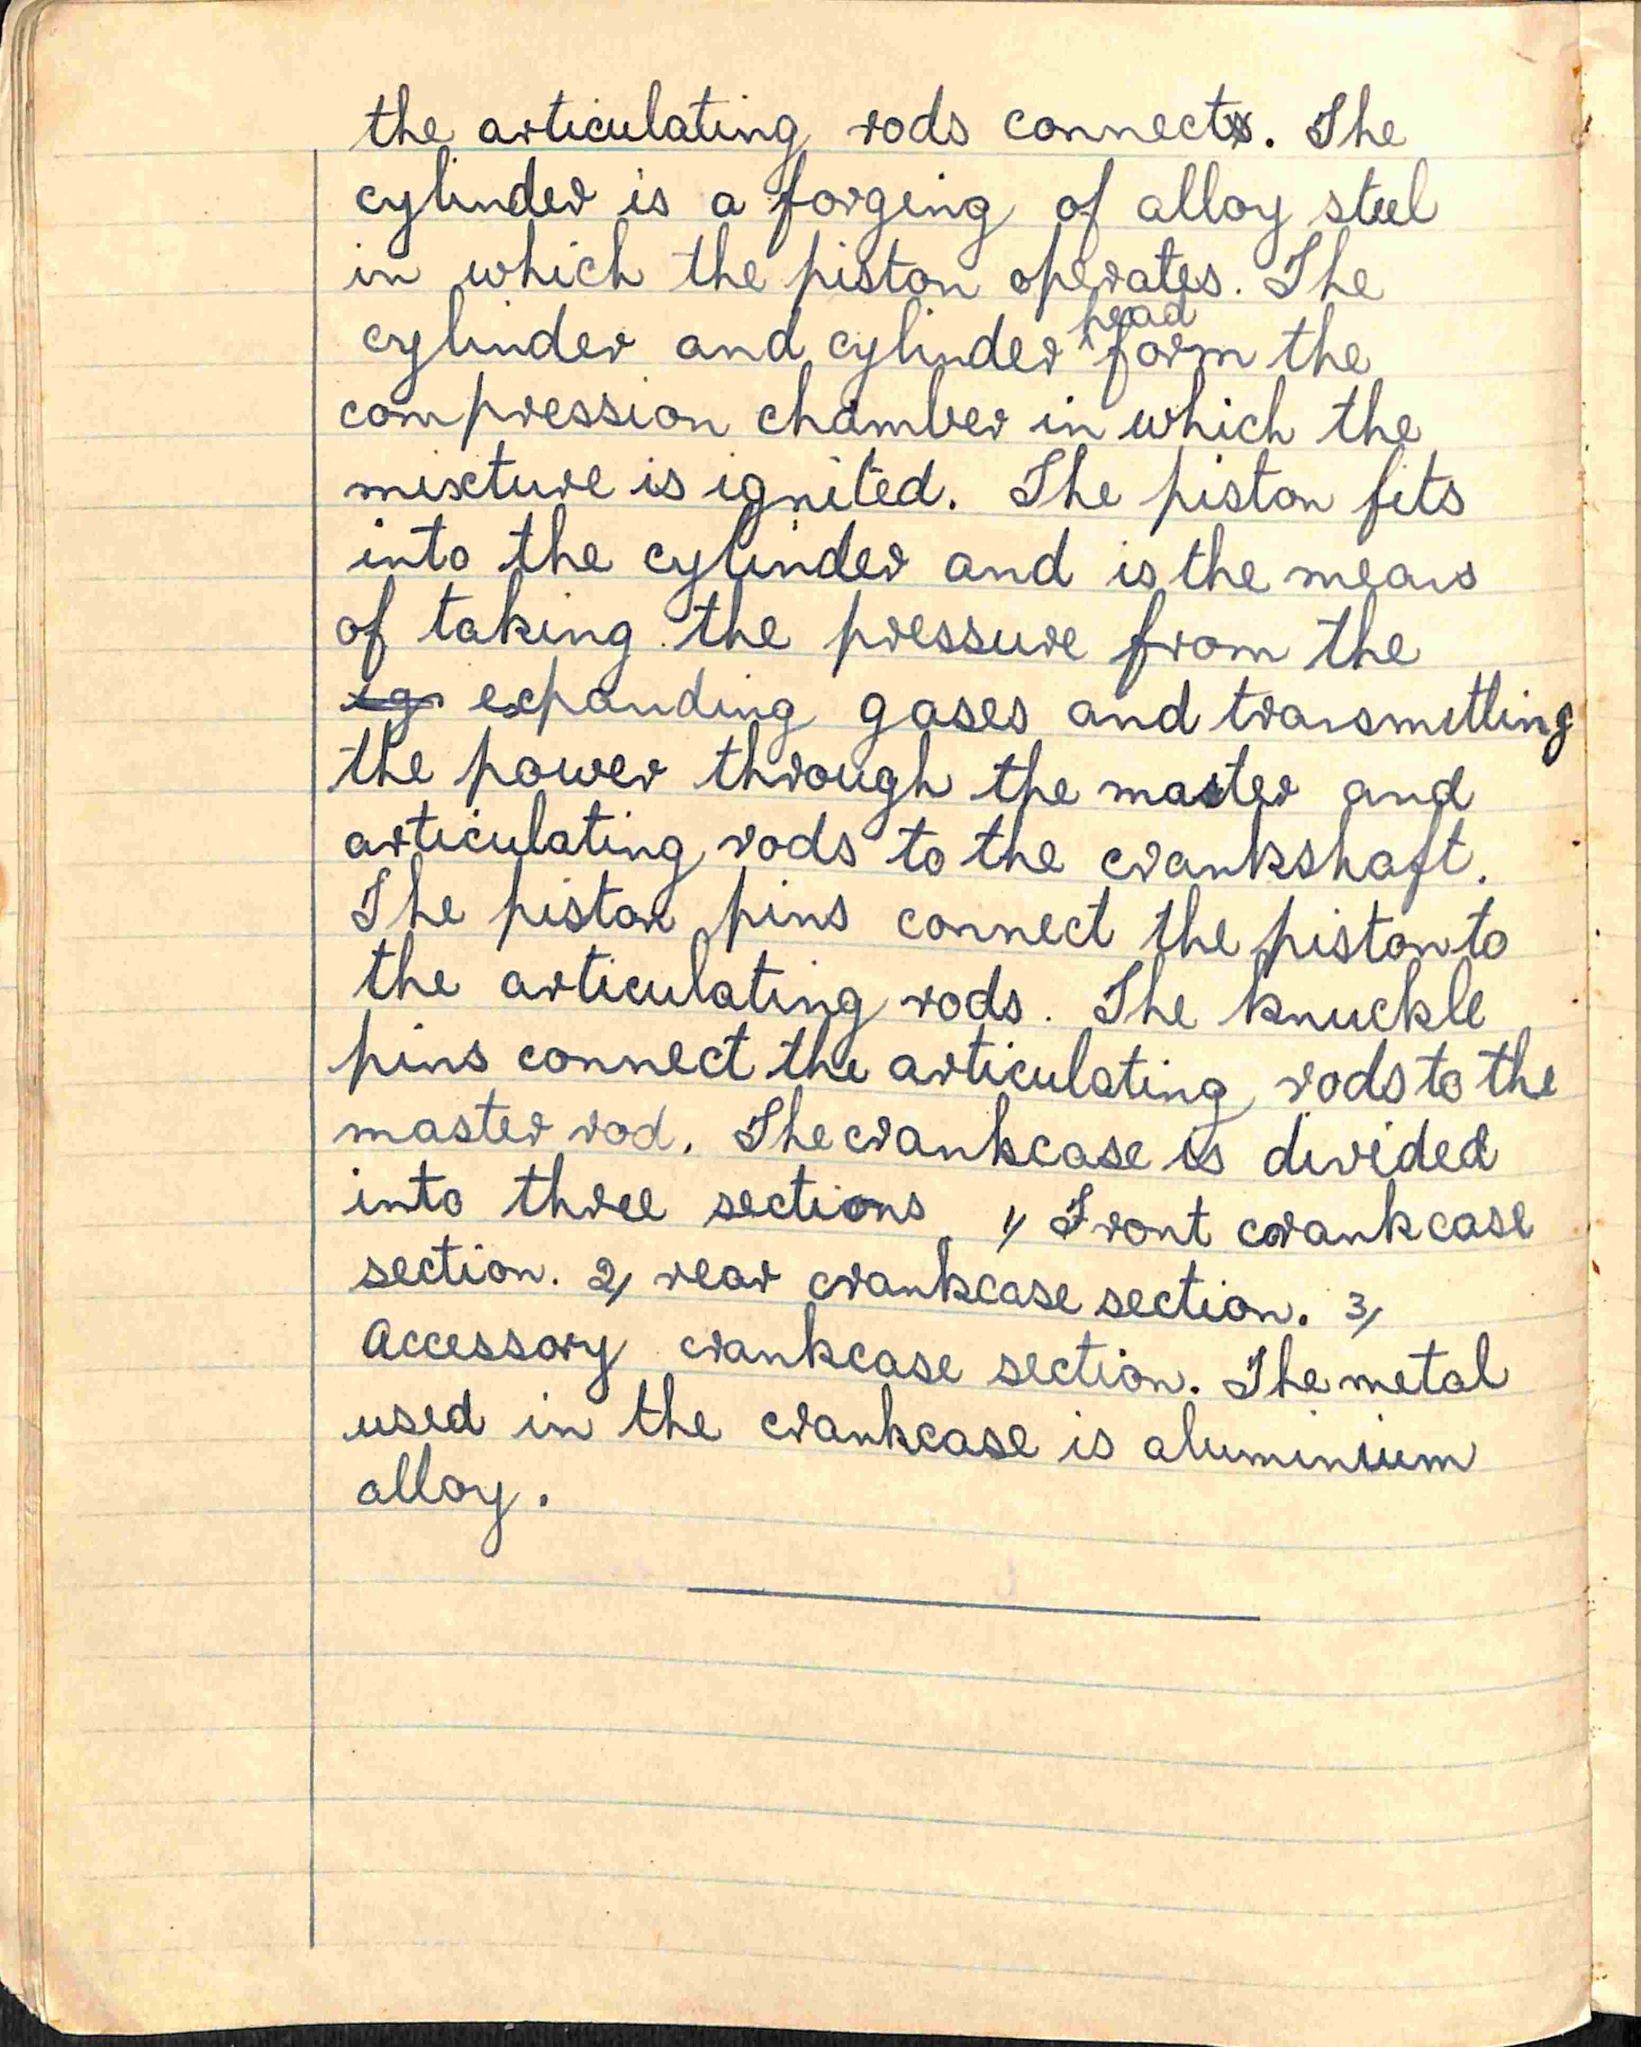 the articulating rods connect. The
cylinder is a forging of alloy steel
in which the piston operates. The
cylinder and cylinder head form the
compression chamber in which the
mixture is ignited. The piston fits
into the cylinder and is the means
of taking the pressure from the
ig expanding gases and transmitting
the power through the master and
articulating rods to the crankshaft.
The piston pins connect the piston to
the articulating rods. The knuckle
pins connect the articulating rods to the
master rod. The crankcase is divided
into three sections. 1/ Front crankcase
section. 2/ rear crankcase section. 3/
Accessory crankcase section. The metal
used in the crankcase is aluminium
alloy.